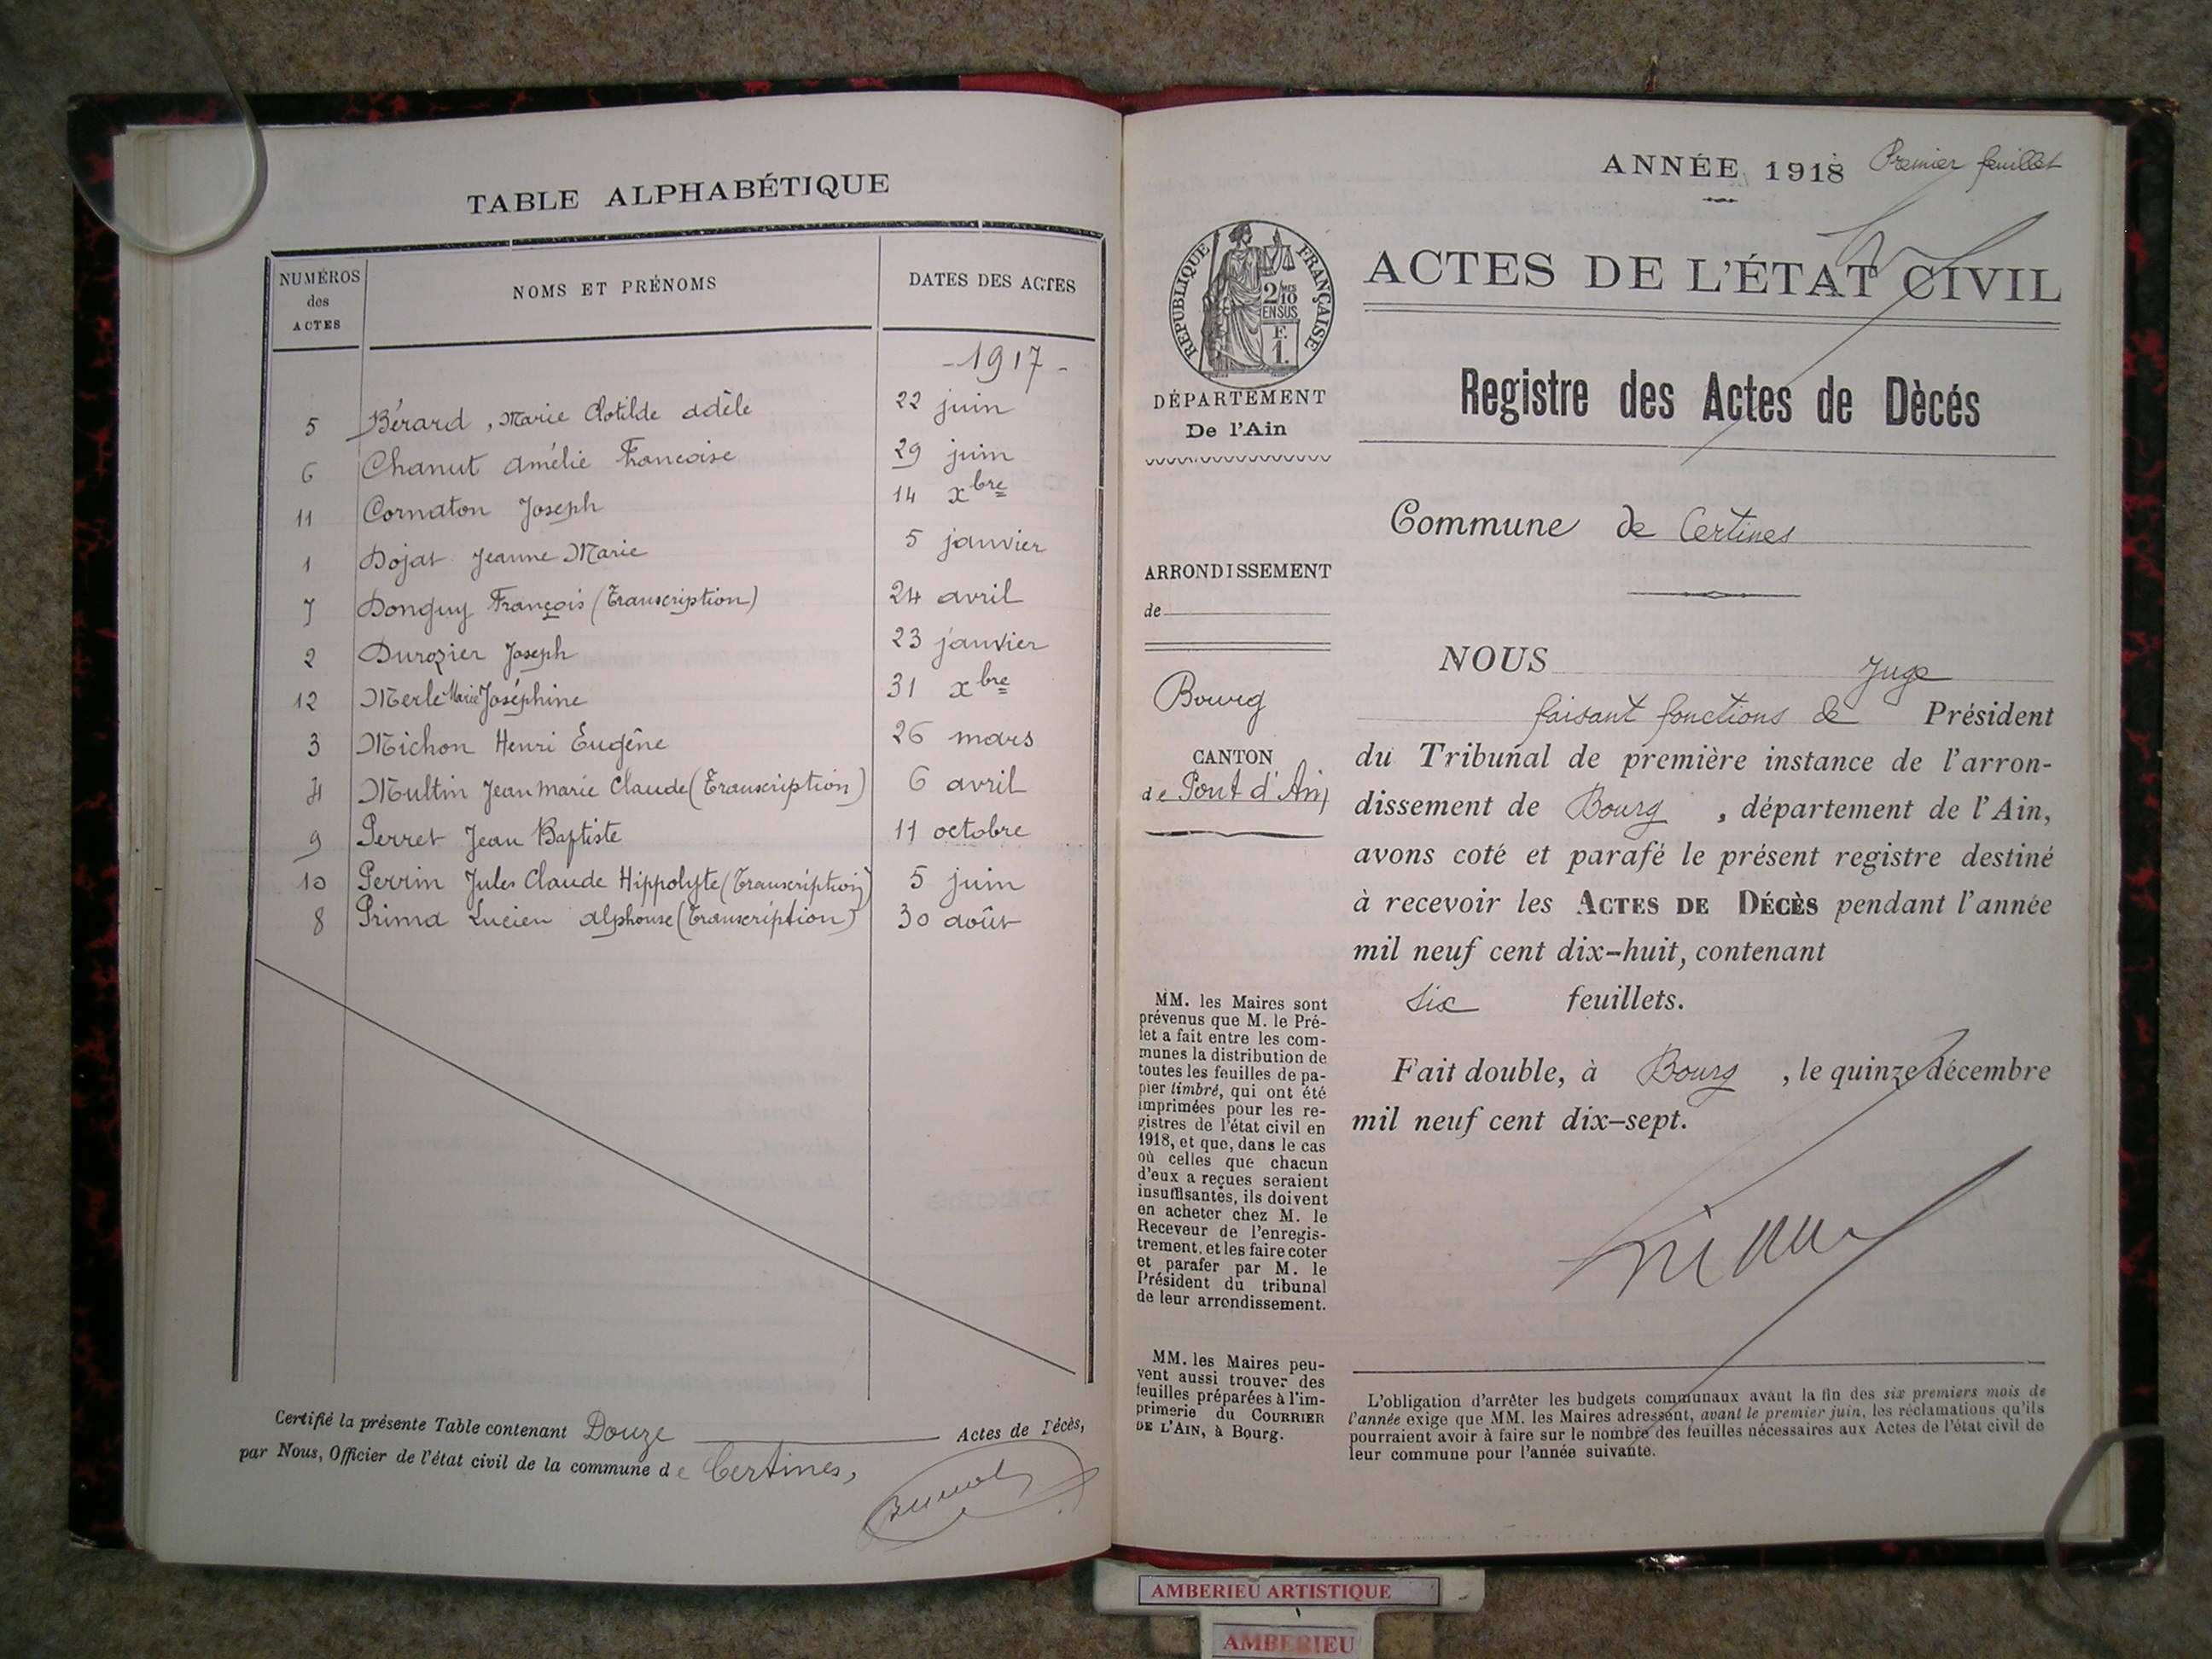 TABLE ALPHABÉTIQUE
NUMÉROS des ACTES
NOMS ET PRÉNOMS
DATES DES ACTES
- 1917 -
5 Bérard, Marie Clotilde adèle 22 juin
6 Chanut Amélie Francoise 29 juin
11 Cornaton Joseph 14 xbre
1 Dojat Jeanne Marie 5 janvier
7 Donguy François (Transcription) 24 avril
2 Durozier Joseph 23 janvier
12 Merle Marie Joséphine 31 xbre
3 Michon Henri Eugêne 26 mars
4 Multin Jean marie Claude (Transcription) 6 avril
9 Perret Jean Baptiste 11 octobre
10 Perrin Jules Claude Hippolyte (Transcription) 5 juin
8 Prima Lucien alphonse (Transcription) 30 août
Certifié la présente Table contenant Douze Actes de Décès,
par Nous, Officier de l'état civil de la commune de Certines,
ANNÉE 1918 Premier feuillet
RÉPUBLIQUE FRANÇAISE
2/10 MES
EN SUS
F.
1.
DÉPARTEMENT
De l'Ain
ARRONDISSEMENT
de
Bourg
CANTON
de Pont d'Ain
MM. les Maires sont
prévenus que M. le Pré-
fet a fait entre les com-
munes la distribution de
toutes les feuilles de pa-
pier timbré, qui ont été
imprimées pour les re-
gistres de l'état civil en
1918, et que, dans le cas
où celles que chacun
d'eux a reçues seraient
insuffisantes, ils doivent
en acheter chez M. le
Receveur de l'enregis-
trement, et les faire coter
et parafer par M. le
Président du tribunal
de leur arrondissement.
MM. les Maires peu-
vent aussi trouver des
feuilles préparées à l'im-
primerie du COURRIER
DE L'AIN, à Bourg.
ACTES DE L'ÉTAT CIVIL
Registre des Actes de Dècés
Commune de Certines
NOUS Juge
faisant fonctions de Président
du Tribunal de première instance de l'arron-
dissement de Bourg, département de l'Ain,
avons coté et parafé le présent registre destiné
à recevoir les ACTES DE DÉCÈS pendant l'année
mil neuf cent dix-huit, contenant
six feuillets.
Fait double, à Bourg, le quinze décembre
mil neuf cent dix-sept.
L'obligation d'arrêter les budgets communaux avant la fin des six premiers mois de
l'année exige que MM. les Maires adressent, avant le premier juin, les réclamations qu'ils
pourraient avoir à faire sur le nombre des feuilles nécessaires aux Actes de l'état civil de
leur commune pour l'année suivante.
AMBERIEU ARTISTIQUE
AMBERIEU